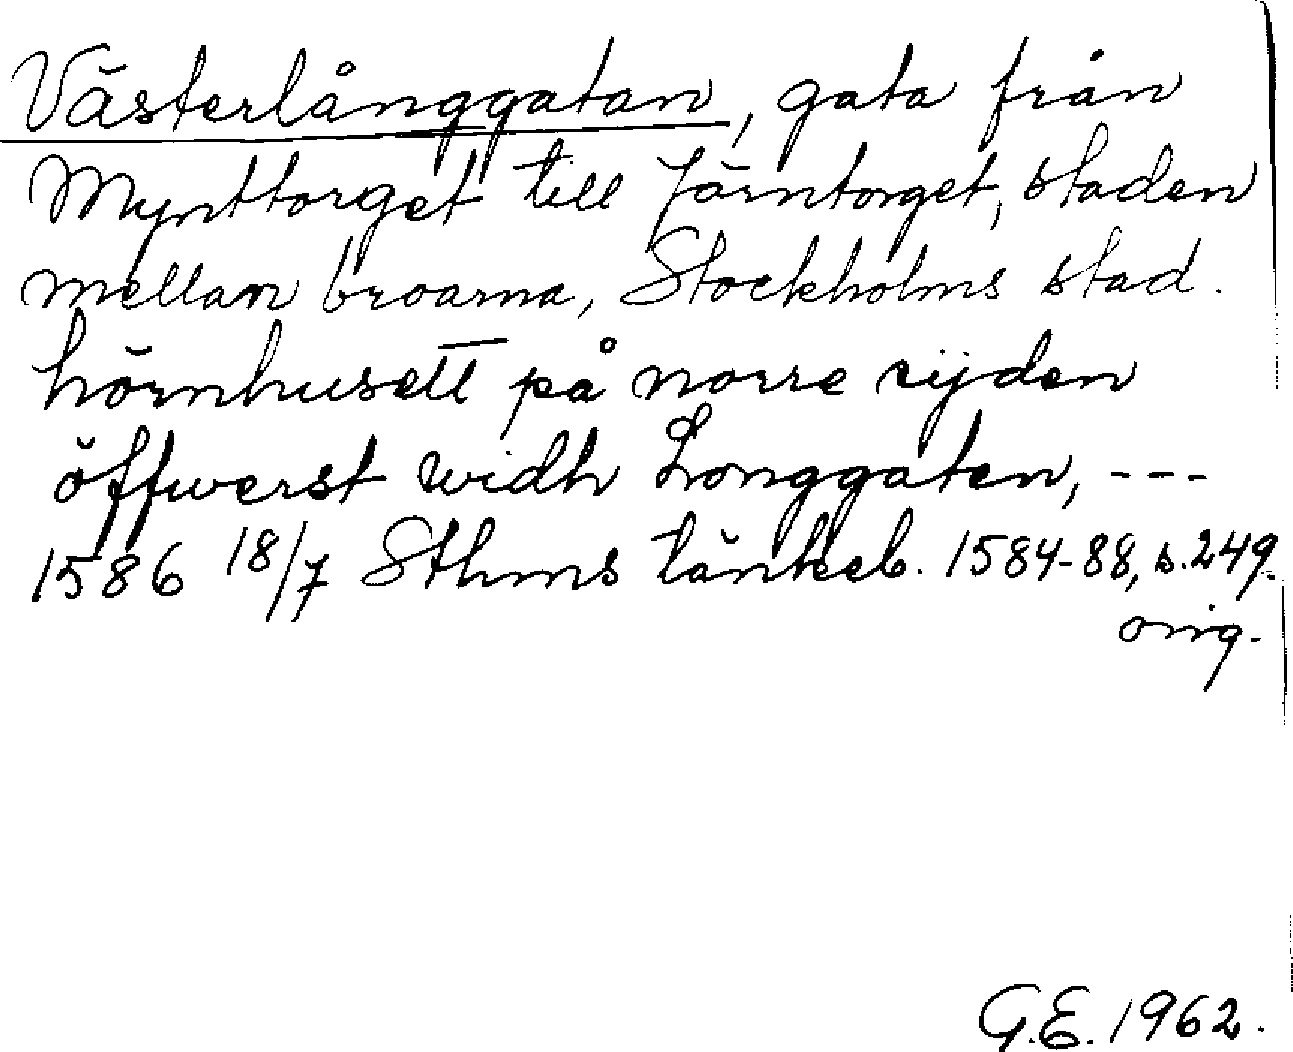 Västerlånggatan, gata från
Mynttorget till Järntorget, staden
mellan broarna, Stockholms stad.
hörnhusett på norre sijden
öffwerst widh Longgaten, ---
1586 18/7 Sthms tänkeb. 1584-88, s. 249.
orig.
G.E. 1962.